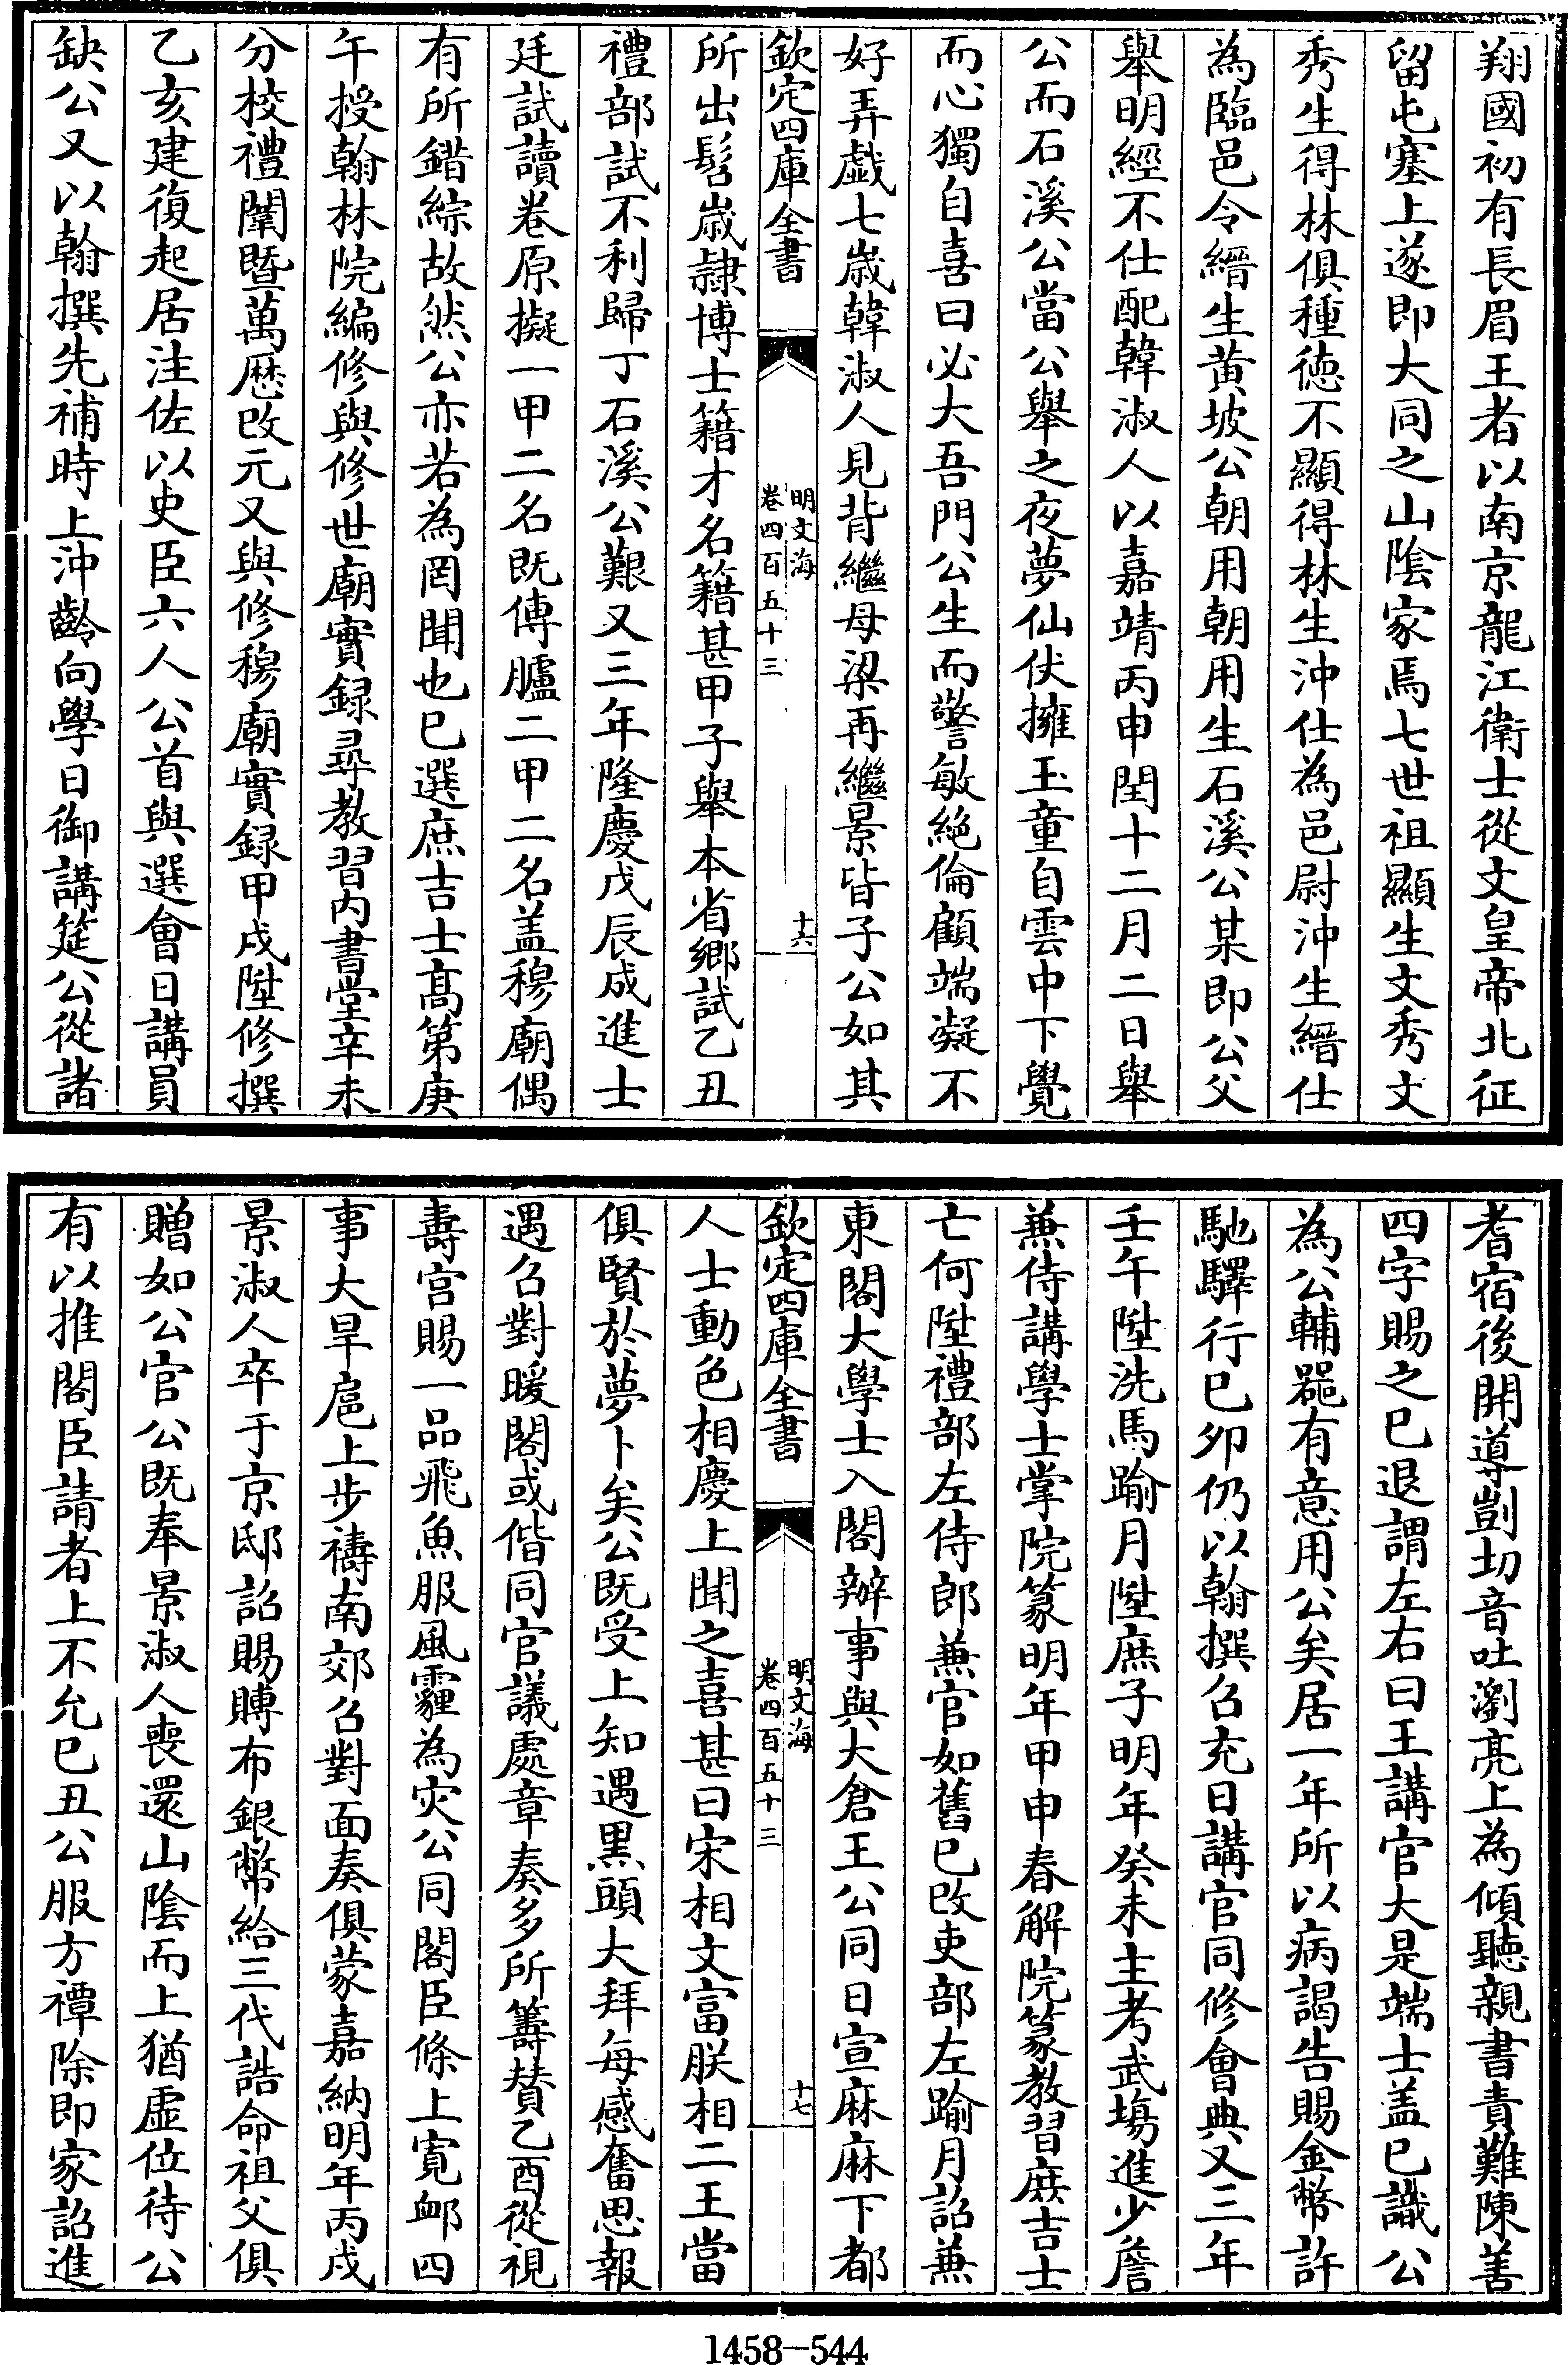 翔國初有長眉王者以南京龍江衛士從文皇帝北征
留屯塞上遂即大同之山陰家焉七世祖顯生文秀文
秀生得林俱種德不顯得林生沖仕為邑尉沖生縉仕
為臨邑令縉生黄坡公朝用朝用生石溪公某即公父
舉明經不仕配韓淑人以嘉靖丙申閏十二月二日舉
公而石溪公當公舉之夜夢仙伏擁玉童自雲中下覺
而心獨自喜曰必大吾門公生而警敏絶倫顧端凝不
好弄戲七歲韓淑人見背繼母梁再繼景皆子公如其
欽定四庫全書
明文海
卷四百五十三
十六
所出髫歲隷博士籍才名籍甚甲子舉本省鄉試乙丑
禮部試不利歸丁石溪公艱又三年隆慶戊辰成進士
廷試讀卷原擬一甲二名既傳臚二甲二名盖穆廟偶
有所錯綜故然公亦若為罔聞也已選庶吉士髙第庚
午授翰林院編修與修世廟實録尋教習内書堂辛未
分校禮闈暨萬厯改元又與修穆廟實録甲戌陞修撰
乙亥建復起居注佐以史臣六人公首與選會日講員
缺公又以翰撰先補時上沖齡向學日御講筵公從諸
耆宿後開導剴切音吐瀏亮上為傾聽親書責難陳善
四字賜之已退謂左右曰王講官大是端士盖已識公
為公輔器有意用公矣居一年所以病謁告賜金幣許
馳驛行已卯仍以翰撰召充日講官同修會典又三年
壬午陞洗馬踰月陞庶子明年癸未主考武場進少詹
兼侍講學士掌院篆明年甲申春解院篆教習庶吉士
亡何陞禮部左侍郎兼官如舊已改吏部左踰月詔兼
東閣大學士入閣辦事與大倉王公同日宣麻麻下都
欽定四庫全書
明文海
卷四百五十三
十七
人士動色相慶上聞之喜甚曰宋相文富朕相二王當
俱賢於夢卜矣公既受上知遇黒頭大拜每感奮思報
遇召對暖閣或偕同官議處章奏多所籌賛乙酉從視
壽宫賜一品飛魚服風霾為灾公同閣臣條上寛䘏四
事大旱扈上步禱南郊召對面奏俱蒙嘉納明年丙戌
景淑人卒于京邸詔賜賻布銀幣給三代誥命祖父俱
贈如公官公既奉景淑人喪還山陰而上猶虛位待公
有以推閣臣請者上不允已丑公服方禫除即家詔進
1458-544